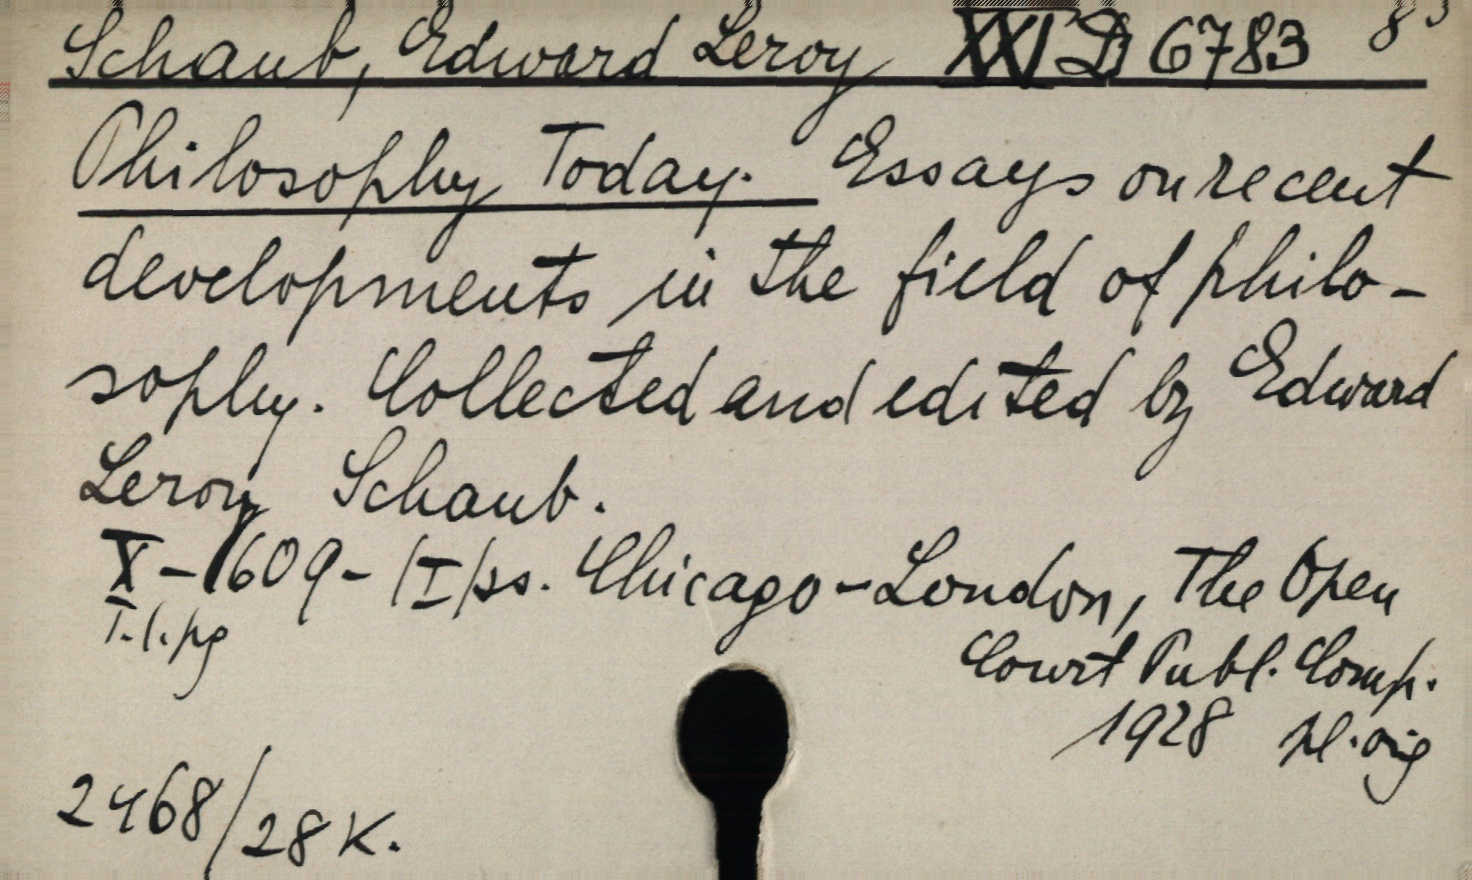 Schaub, Edward Leroy XXI D 6783 8³
Philosophy Today. Essays on recent
developments in the field of philo-
sophy. Collected and edited by Edward
Leroy Schaub.
X-609-/I/ss. Chicago-London, The Open
T.l.pg
Court Publ. Comp.
1928 pl.orig
2468/28 K.